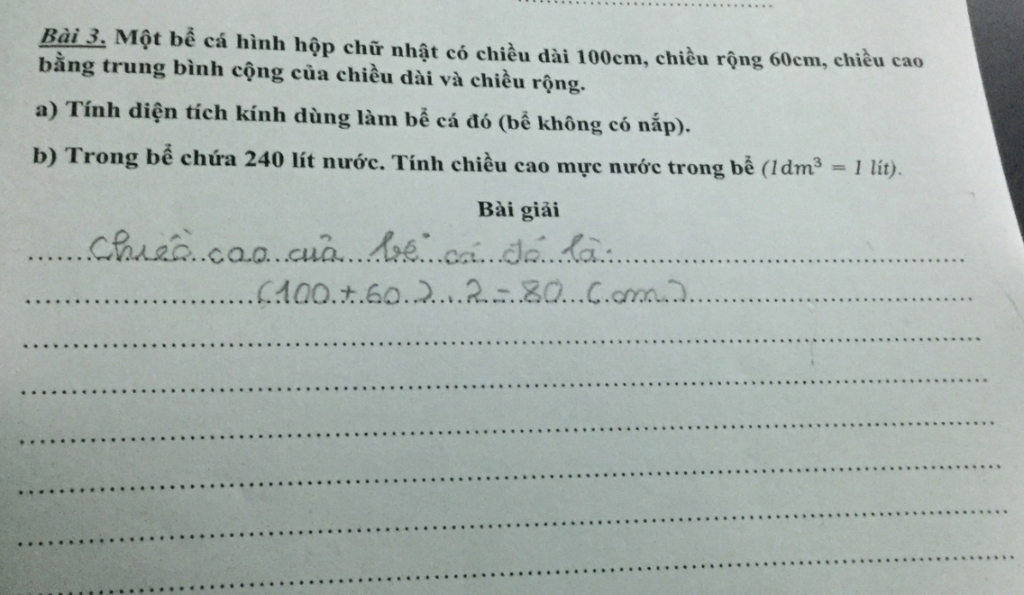 Bài 3. Một bể cá hình hộp chữ nhật có chiều dài 100cm, chiều rộng 60cm, chiều cao
bằng trung bình cộng của chiều dài và chiều rộng.
a) Tính diện tích kính dùng làm bể cá đó (bể không có nắp).
b) Trong bể chứa 240 lít nước. Tính chiều cao mực nước trong bể (1dm³ = 1 lít).
Bài giải
Chiều cao của bể cá đó là:
(100 + 60) : 2 = 80 (cm)